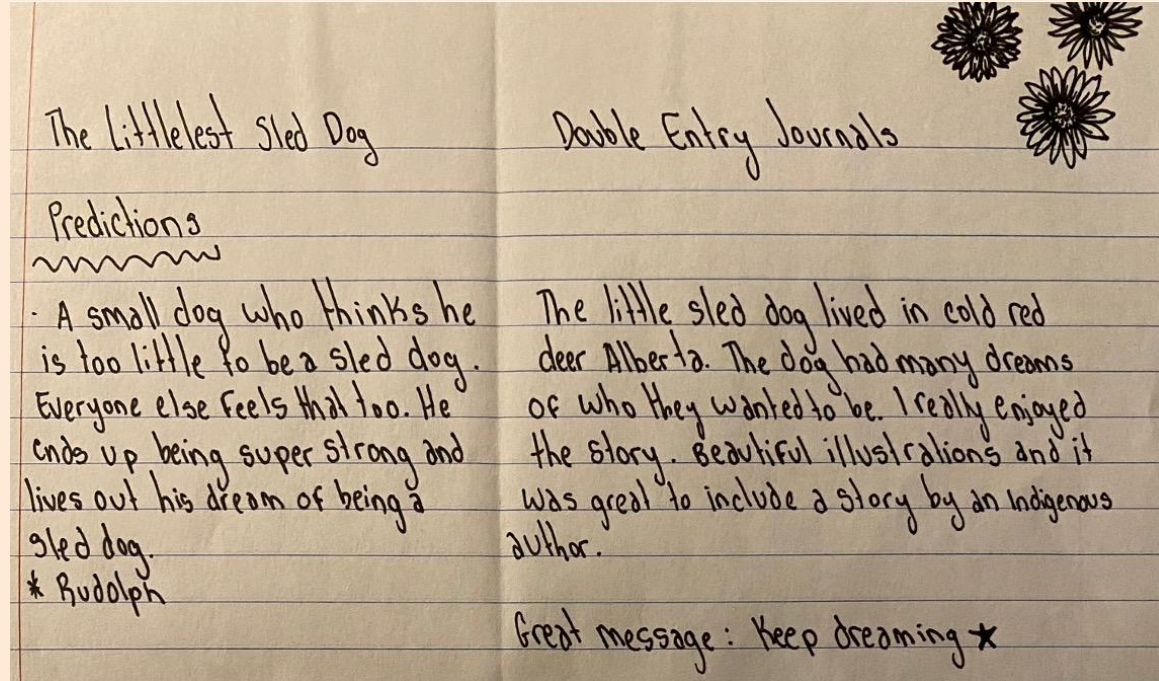 The Littlelest Sled Dog
Predictions
· A small dog who thinks he
is too little to be a sled dog.
Everyone else feels that too. He
ends up being super strong and
lives out his dream of being a
sled dog.
* Rudolph
Double Entry Journals
The little sled dog lived in cold red
deer Alberta. The dog had many dreams
of who they wanted to be. I really enjoyed
the story. Beautiful illustrations and it
was great to include a story by an Indigenous
author.
Great message: Keep dreaming ★